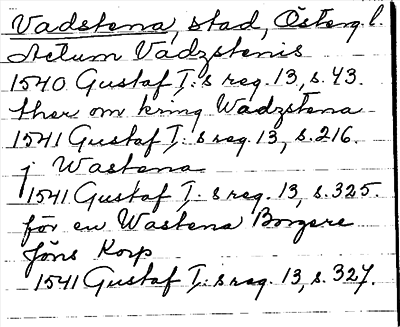 Vadstena, stad, Österg l.
Actum Vadzstenis
1540 Gustaf I:s reg. 13, s. 43.
ther om kring Wadzstena
1541 Gustaf I:s reg. 13, s. 216.
j Wastena
1541 Gustaf I:s reg. 13, s. 325.
för en Wastena Borgere
Jöns Korp
1541 Gustaf I:s reg. 13, s. 327.